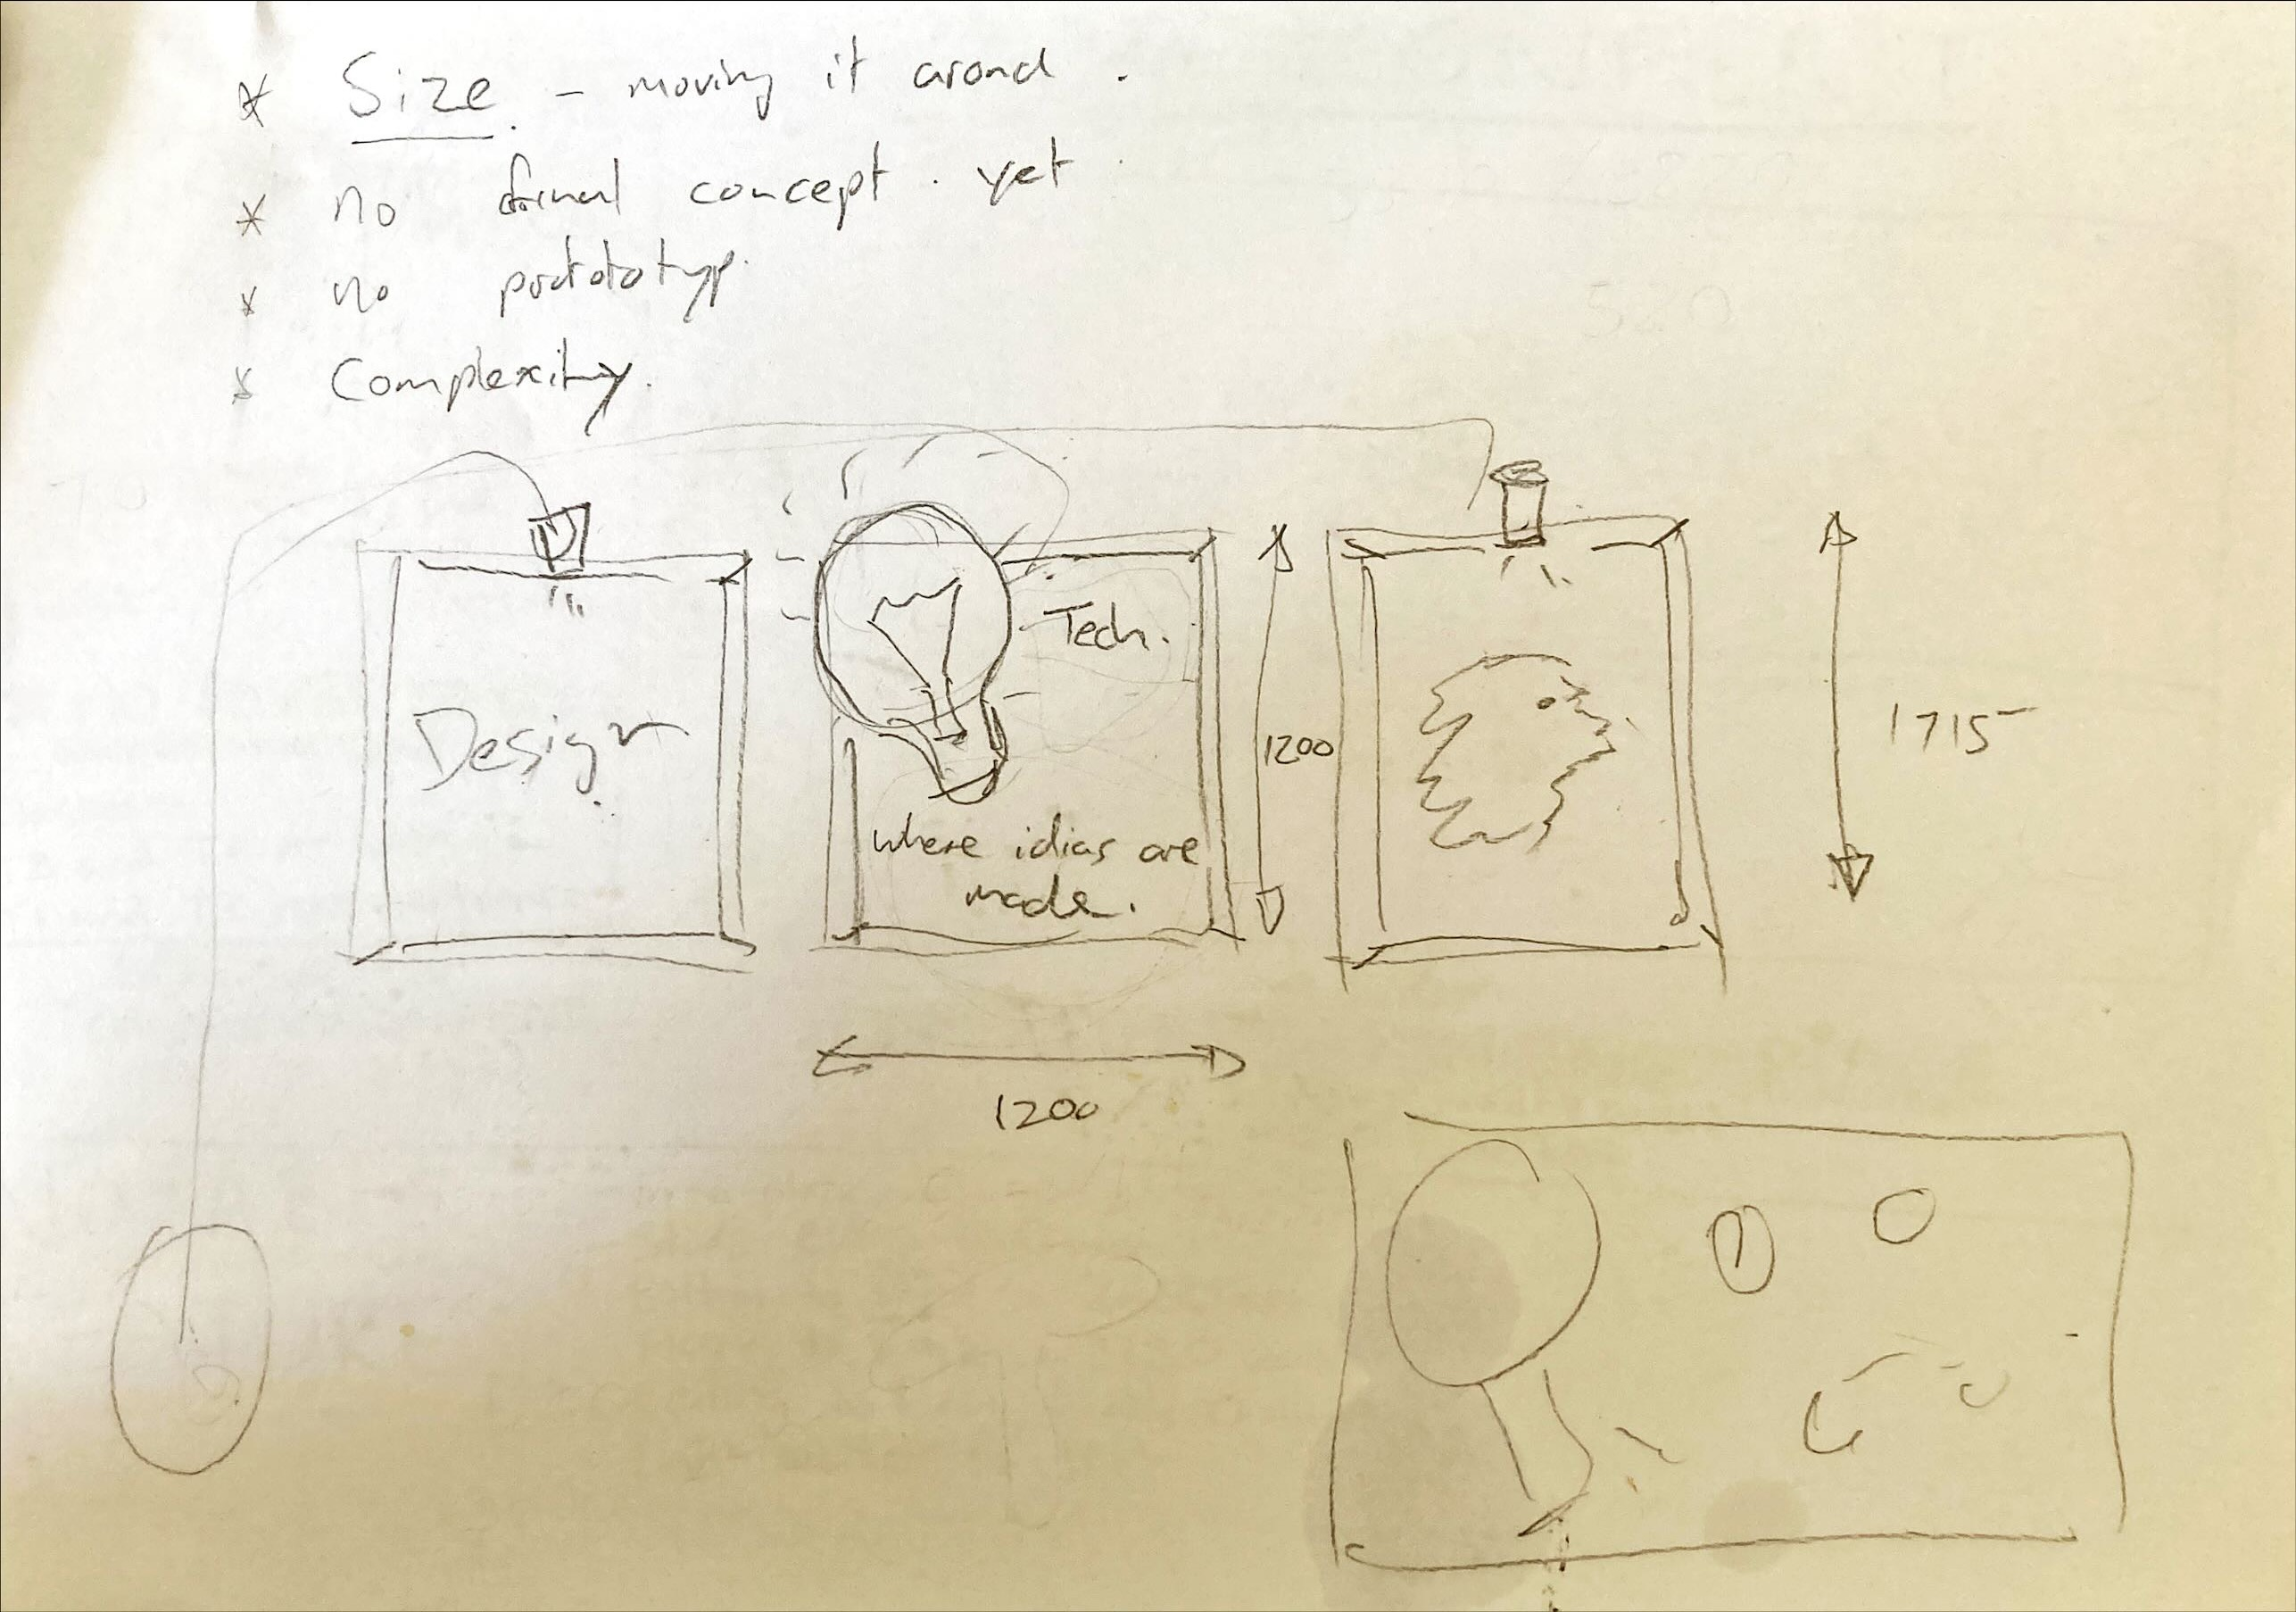 * Size - moving it around.
* no formal concept. yet
* no protototyp.
* Complexity.
Design
Tech.
where idias are
made.
1200
1715
1200